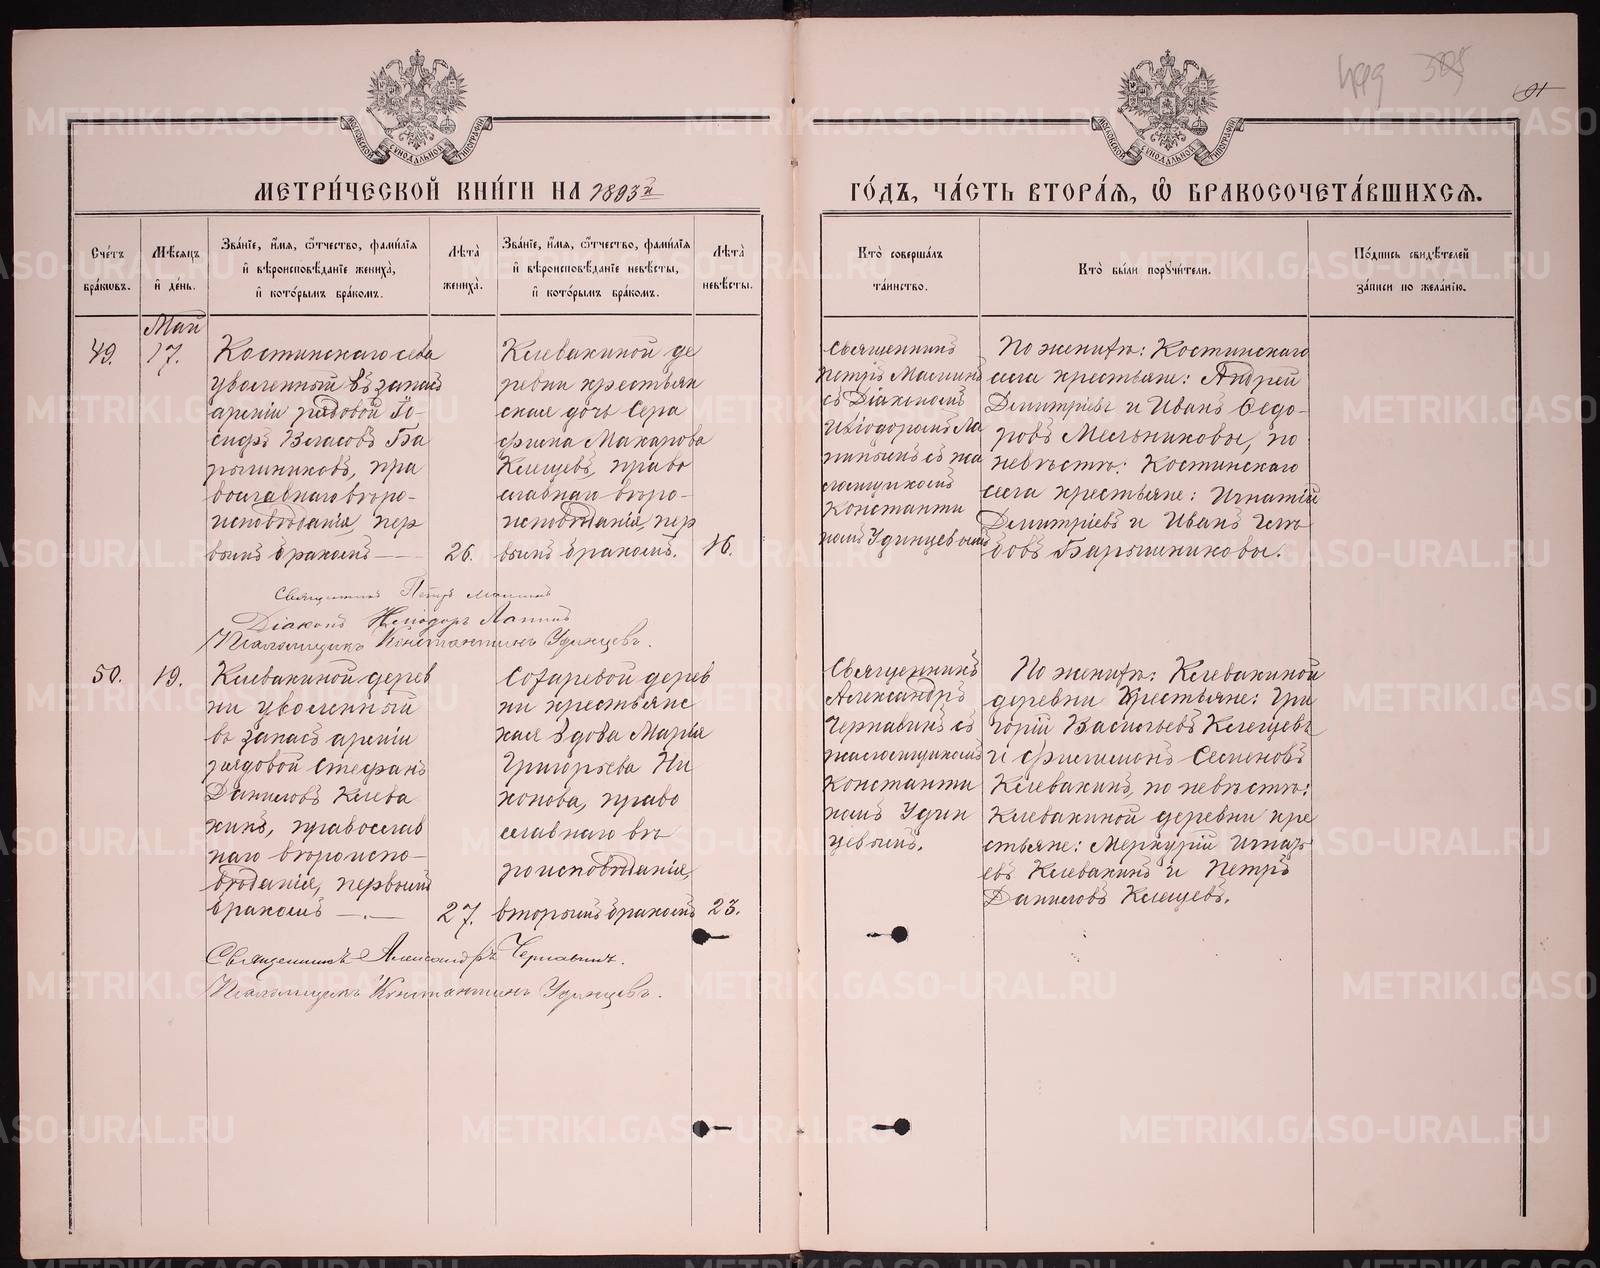 МЕТРИ́ЧЕСКОЙ КНИ́ГИ НА 1893й
ГО́ДЪ, ЧА́СТЬ ВТОРА́Я, Ѽ БРАКОСОЧЕТА́ВШИХСЯ.
Сче́тъ бра́кѡвъ.
Мѣ́сяцъ и҆ де́нь.
Зва́нїе, и҆́мя, ѻ҆́тчество, фами́лїя
и҆ вѣроисповѣ́данїе жениха̀,
и҆ кото́рымъ бра́комъ.
Лѣ́та̀ жениха̀.
Зва́нїе, и҆́мя, ѻ҆́тчество, фами́лїя
и҆ вѣроисповѣ́данїе невѣ́сты,
и҆ кото́рымъ бра́комъ.
Лѣ́та̀ невѣ́сты.
Кто̀ соверша́лъ
та́инство.
Кто̀ бы́ли порꙋчи́тели.
По́дпись свидѣ́телей
за́писи по жела́нїю.
Май
49.
17.
Костинскаго села
уволенный въ запасъ
арміи рядовой Іо-
сифъ Власовъ Ба
рышниковъ, пра
вославнаго вѣро-
исповѣданія, пер
вымъ бракомъ —
26.
Клевакиной де
ревни крестьян
ская дочь Сера
фима Макарова
Клещевъ, право
славнаго вѣро-
исповѣданія, пер
вымъ бракомъ.
16.
Священникъ
Петръ Маминъ
съ Діакономъ
Иліодоромъ Ла
пинымъ съ пса
ломщикомъ
Константи
номъ Удинцевымъ
По женихѣ: Костинскаго
села крестьяне: Андрей
Димитріевъ и Иванъ Ѳедо-
ровъ Мельниковы, по
невѣстѣ: Костинскаго
села крестьяне: Игнатій
Димитріевъ и Иванъ Глѣ
бовъ Барышниковы.
Священникъ Петръ Маминъ
Діаконъ Иліодоръ Лапинъ
Псаломщикъ Константинъ Удинцевъ.
50.
19.
Клевакиной дерев
ни уволенный
въ запасъ арміи
рядовой Стефанъ
Даниловъ Клева
кинъ, православ
наго вѣроиспо-
вѣданія, первымъ
бракомъ —
27.
Сохаревой дерев
ни крестьянс
кая вдова Марія
Григорьева Ни
конова, право
славнаго вѣ
роисповѣданія,
вторымъ бракомъ
23.
Священникъ
Александръ
Чернавинъ съ
псаломщикомъ
Константи
номъ Удин
цевымъ.
По женихѣ: Клевакиной
деревни крестьяне: Гри
горій Васильевъ Клещевъ
и Филимонъ Семеновъ
Клевакинъ, по невѣстѣ:
Клевакиной деревни кре
стьяне: Меркурій Игнать
евъ Клевакинъ и Петръ
Даниловъ Клещевъ.
Священникъ Александръ Чернавинъ.
Псаломщикъ Константинъ Удинцевъ.
METRIKI.GASO-URAL.RU